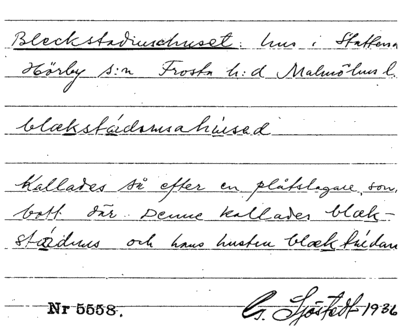 Bleckstadiushuset: hus i Staffens
Hörby s:n Frosta h:d Malmöhus l.
blækstádosahused
Kallades så efter en plåtslagare, som
bott där. Denne kallades blæk-
och hans hustru
Nr 5558. G. Sjöstedt 1936